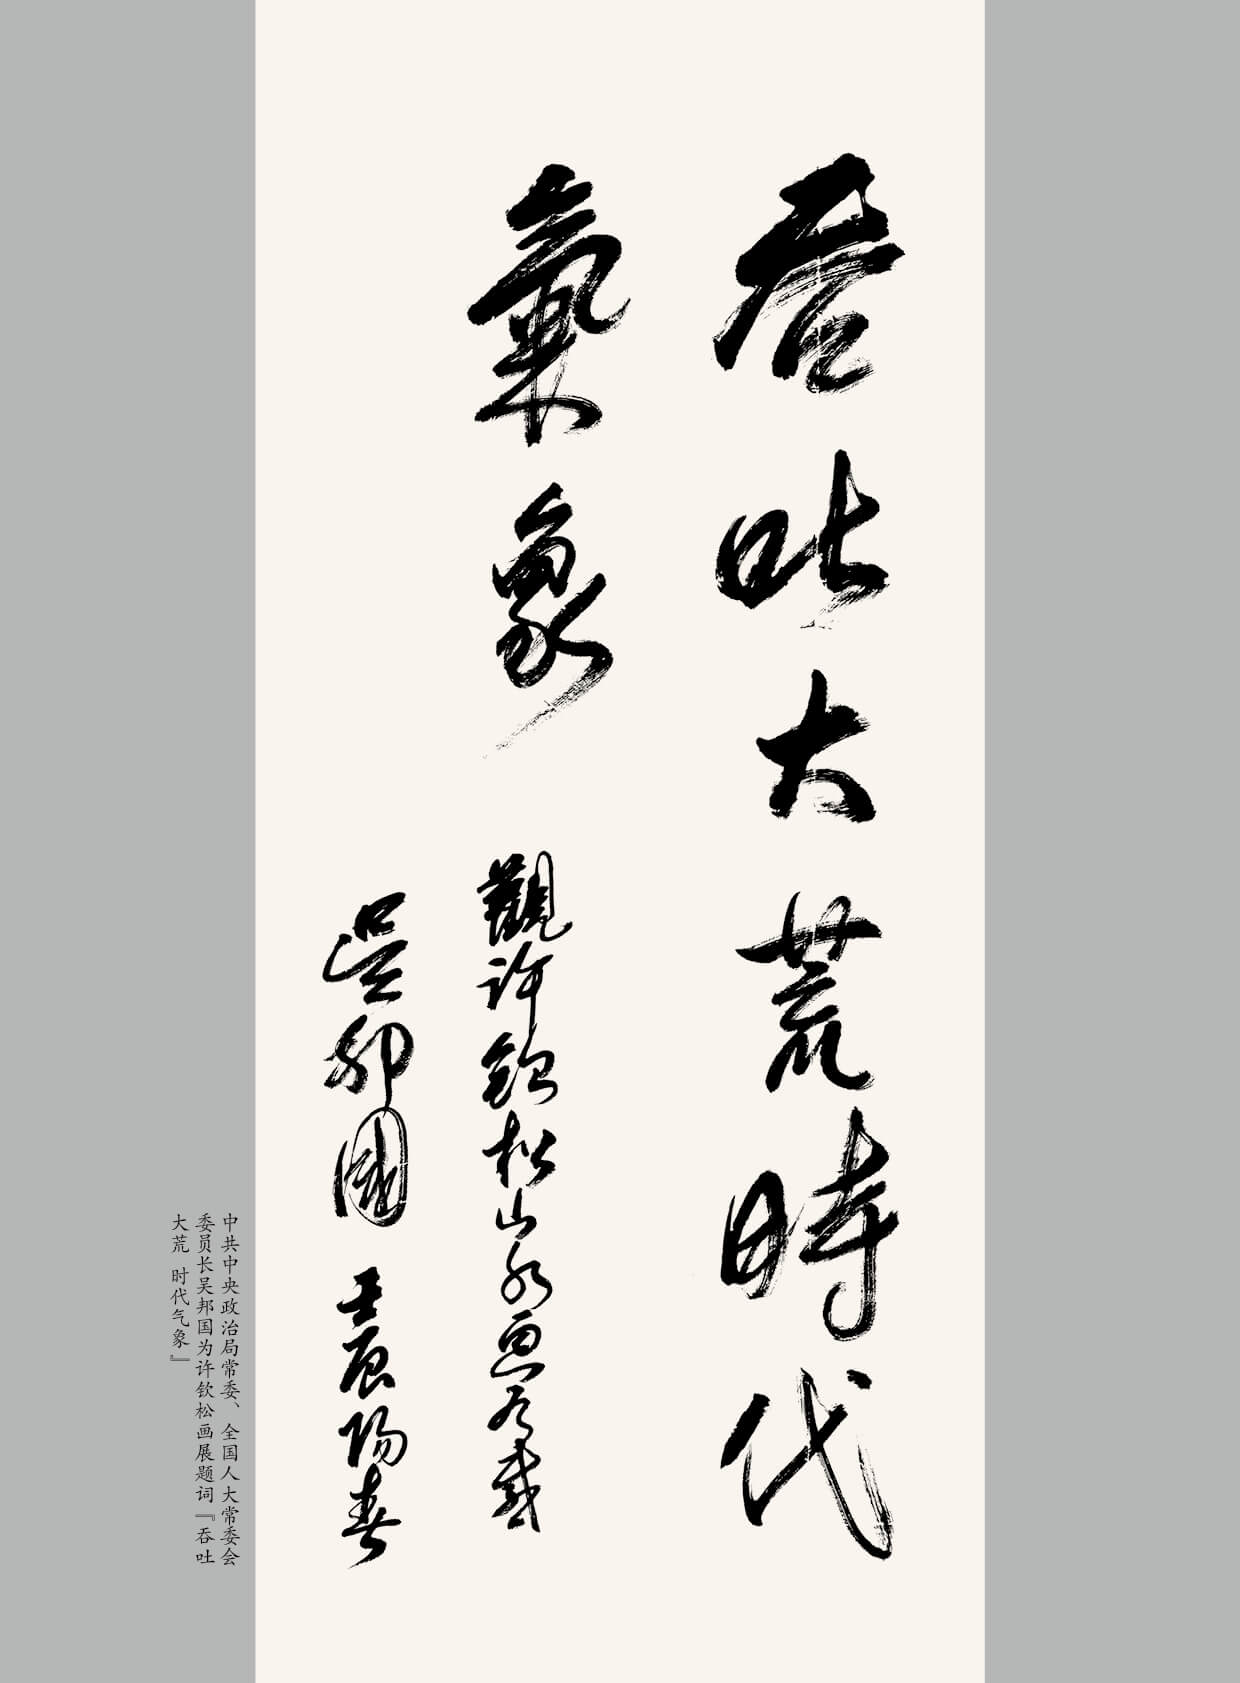 吞吐大荒時代
氣象
觀許欽松山水畫有感
吳邦國 壬辰陽春
中共中央政治局常委、全国人大常委会
委员长吴邦国为许钦松画展题词『吞吐
大荒 时代气象』